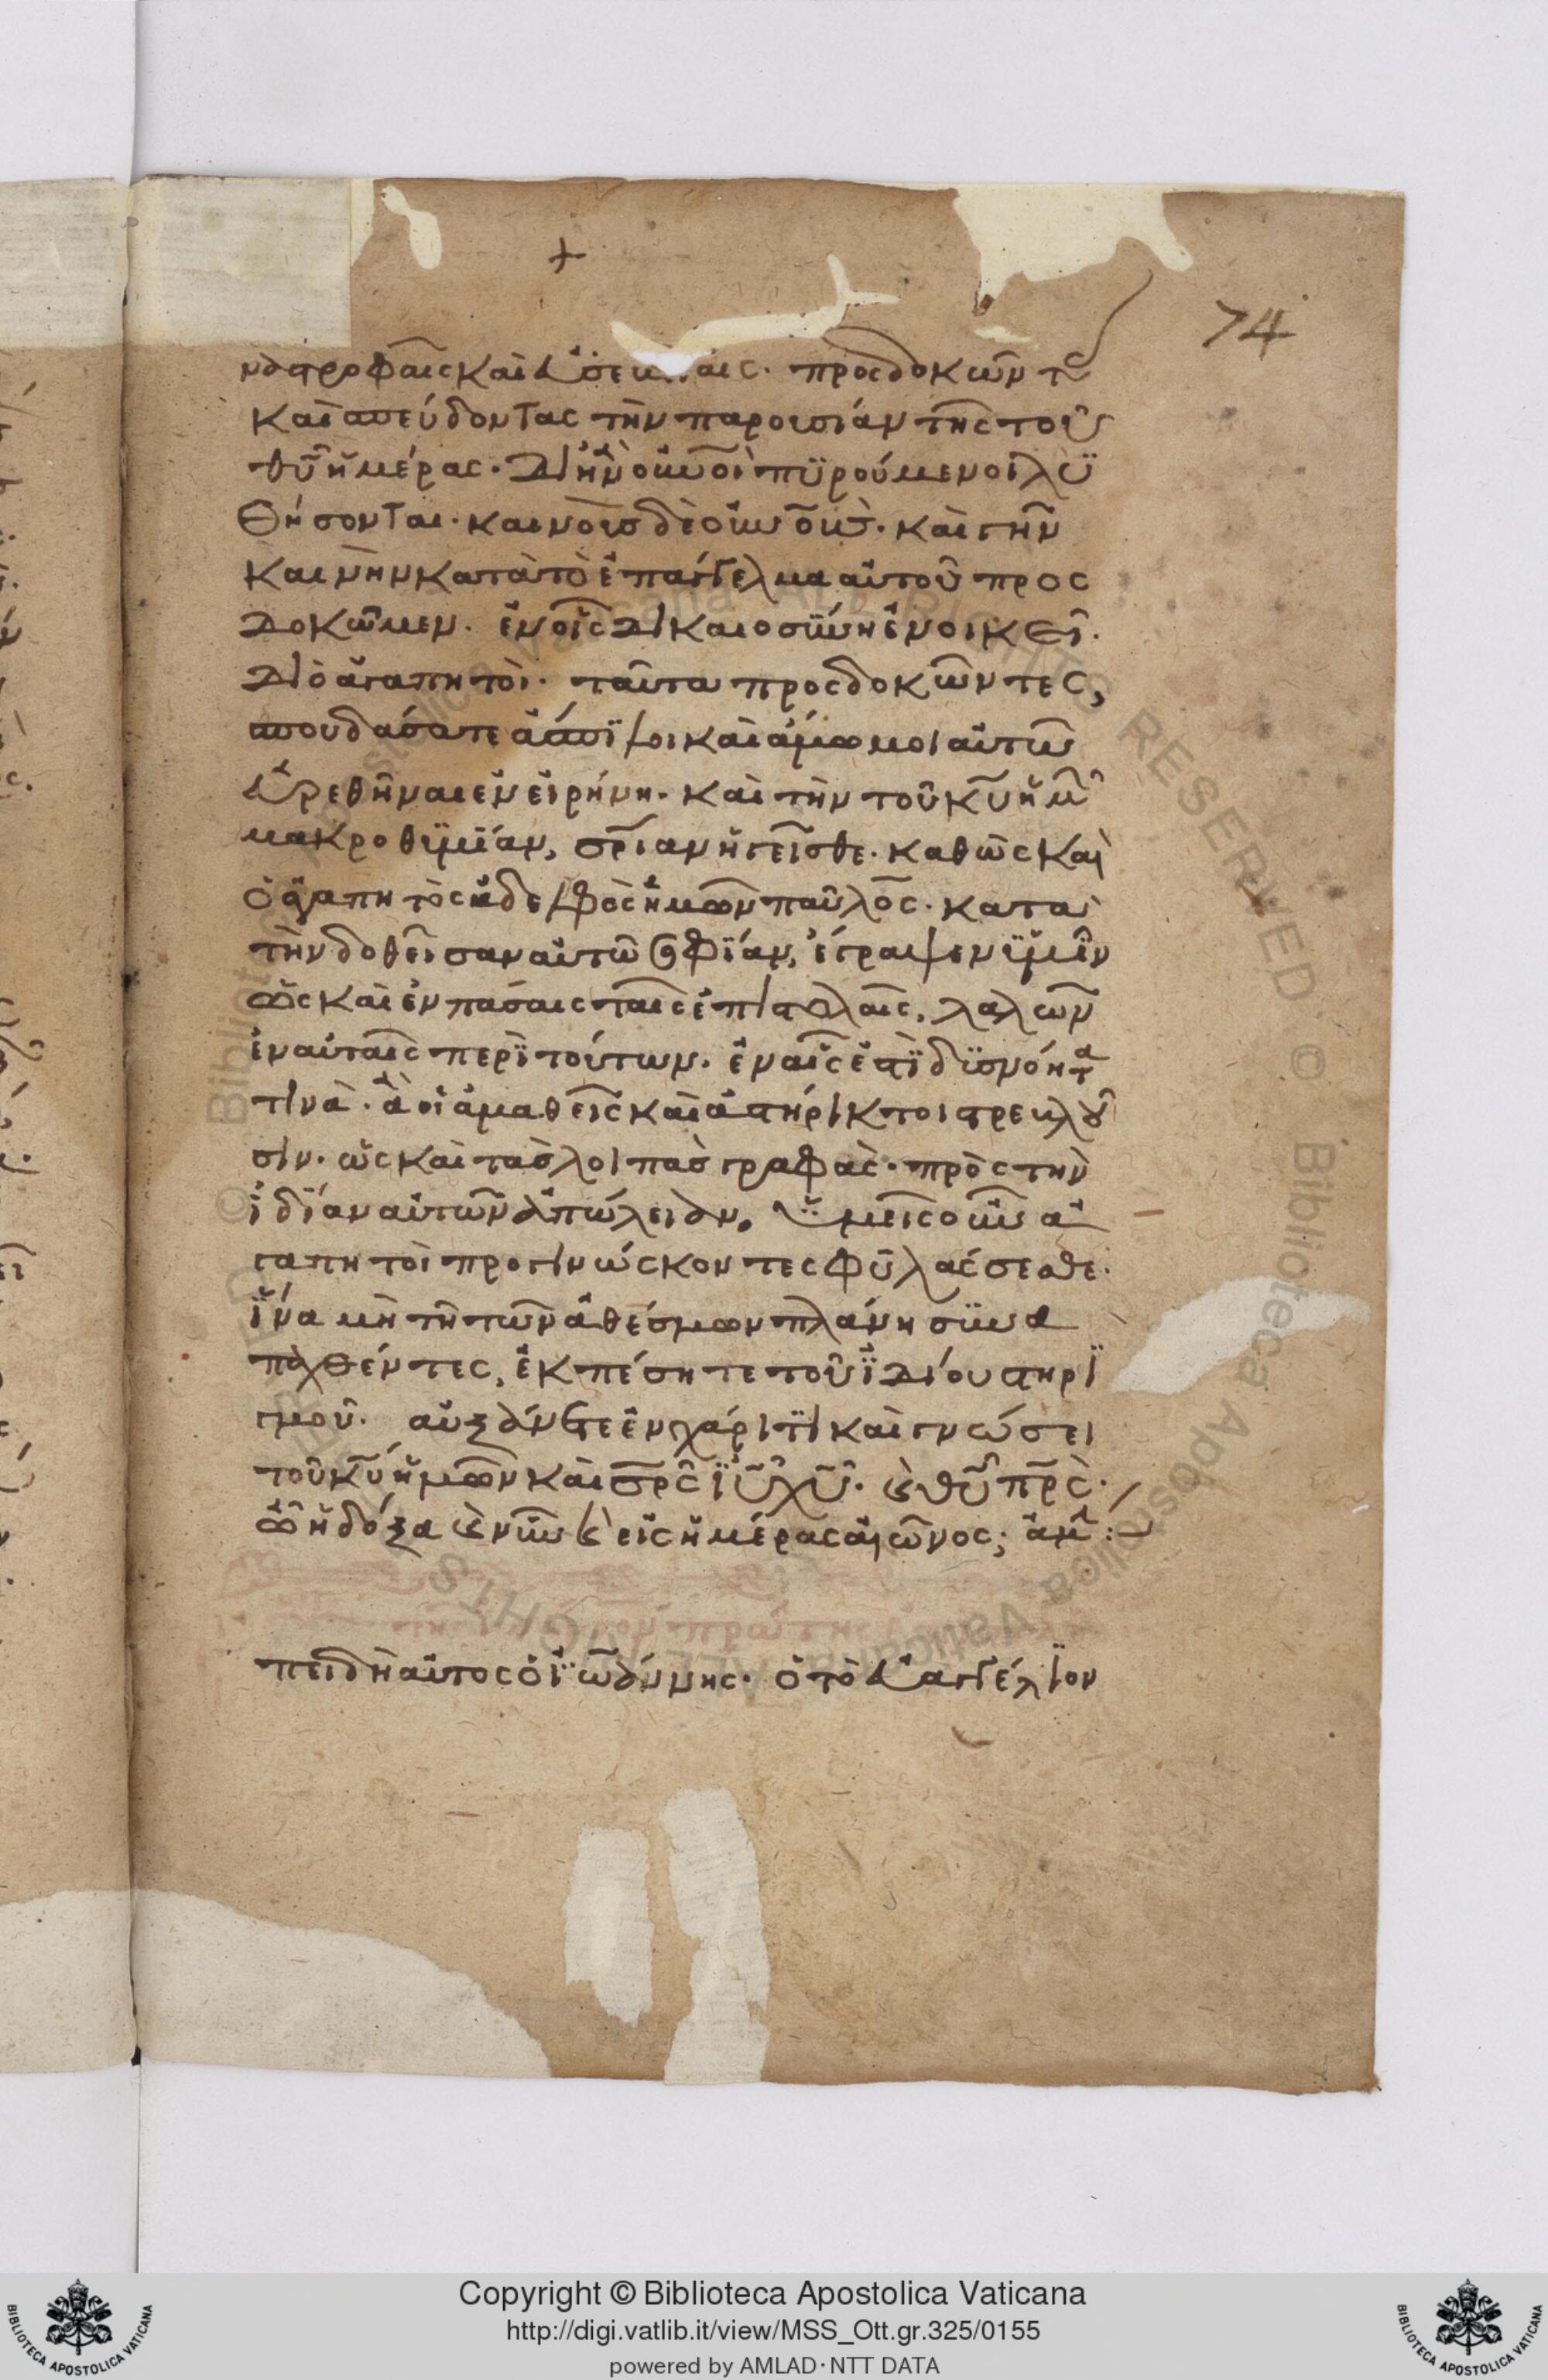 +
74
ναστροφαῖς καὶ εὐσε    αις· προσδοκῶντ
καὶ σπεύδοντας τὴν παρουσίαν τῆς τοῦ
θῡ ἡμέρας· δι' ἣν οὐνοὶ πϋρούμενοι λϋ
θήσονται· καινοὺσ δὲ οὐνοὺσ· καὶ γῆν
καινὴν κατὰ τὸ ἐπάγγελμα αὐτοῦ προσ
δοκῶμεν· ἐν οἷς δικαιοσϋνη ἐνοικεῖ·
διὸ ἀγαπητοὶ· ταῦτα προσδοκῶντες,
σπουδάσατε ἄσπϊλοι καὶ ἀμώμοι αὐτῶ
εὑρεθῆναι ἐν εἰρήνη· καὶ τὴν τοῦ κῡ ἡμ
μακροθϋμΐαν, σρΐαν ἡγεῖσθε· καθὼς καὶ
ὁ ἀγαπητὸς ἀδελφὸς ἡμῶν παῦλος· κατὰ
τὴν δοθεῖσαν αὐτῶ σοφΐαν, ἔγραψεν ϋμῖν
ὡς καὶ ἐν πάσαις ταῖς ἐπιστολαῖς, λαλῶν
ἐν αὐταῖς περὶ τούτων· ἐν αἷς ἐστϊ δϋσνόητα
τινὰ· ἃ οἱ ἀμαθεῖς καὶ ἀστήρικτοι στρεβλοῦ
σιν· ὡς καὶ τὰσ λοιπὰσ γραφὰς· πρὸς τὴν
ἰδΐαν αὐτῶν ἀπώλειαν. ϋμεῖς οὖν ἀ
γαπητοὶ προγινώσκοντες φϋλάσσεσθε·
ἵνα μὴ τῆ τῶν ἀθέσμων πλάνη σϋνα
παχθέντες, ἐκπέσητε τοῦ ϊδίου στηρϊ
γμοῦ· αὐξάνετε ἐν χάριτϊ καὶ γνώσει
τοῦ κῡ ἡμῶν καὶ σρς ϊῡ χῡ· καὶ θῡ πρς·
ὧ ἡ δόξα καὶ νῦν καὶ εἰς ἡμέρας αἰῶνος; ἀμ:
πειδὴ αὐτος ὁ ϊωάννης· ὁ τὸ εὐαγγέλϊον
Copyright © Biblioteca Apostolica Vaticana
http://digi.vatlib.it/view/MSS_Ott.gr.325/0155
powered by AMLAD·NTT DATA
BIBLIOTECA APOSTOLICA VATICANA
BIBLIOTECA APOSTOLICA VATICANA